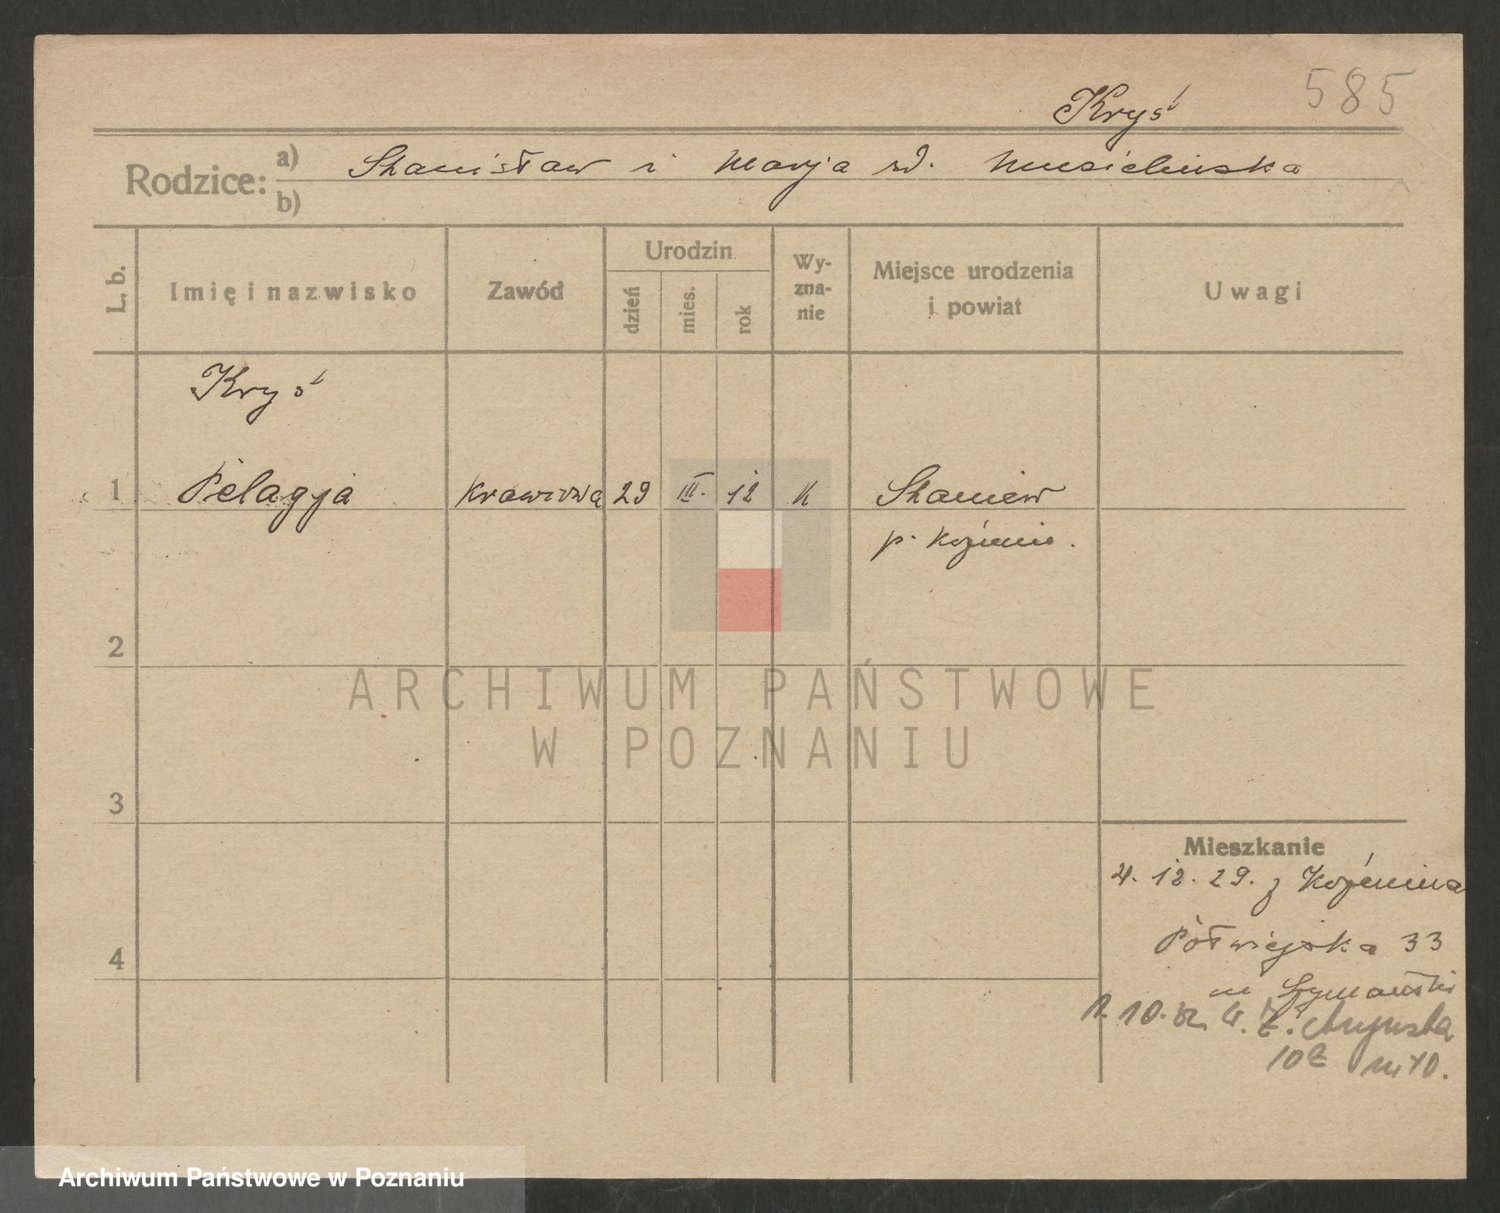 585
Kryś
Rodzice: a) Stanisław i Marja rd. Musielińska
b)
L. b.
Imię i nazwisko
Zawód
Urodzin
dzień
mies.
rok
Wy-
zna-
nie
Miejsce urodzenia
i powiat
Uwagi
Kryś
1 Pelagja krawcowa 29 III. 12 k Staniew
p. Koźmin.
2
ARCHIWUM PAŃSTWOWE
W POZNANIU
3
Mieszkanie
4. 12. 29. z Koźmina
4
Półwiejska 33
Szymański
10.
Augusta
10
Archiwum Państwowe w Poznaniu